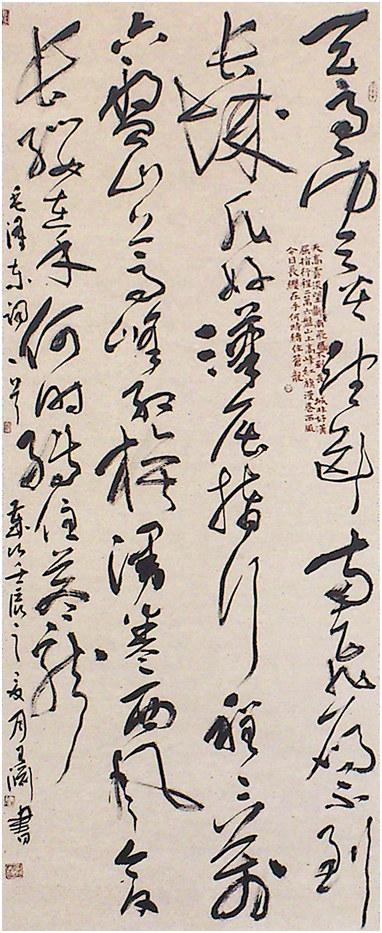 天高雲淡望斷南飛雁不到
長城非好漢屈指行程二萬
六盤山上高峰紅旗漫卷西風今日
長纓在手何時縛住蒼龍
毛澤東詞一首 歲次壬辰之夏月王渊書
天高雲淡望斷南飛雁不到長城非好漢
屈指行程二萬六盤山上高峰紅旗漫卷西風
今日長纓在手何時縛住蒼龍